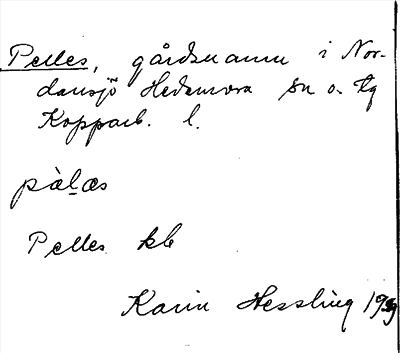 Pelles, gårdsnamn i Nor-
dansjö Hedemora sn o. tg
Kopparb. l.
pàl̲æs
Pelles kb
Karin Hessling